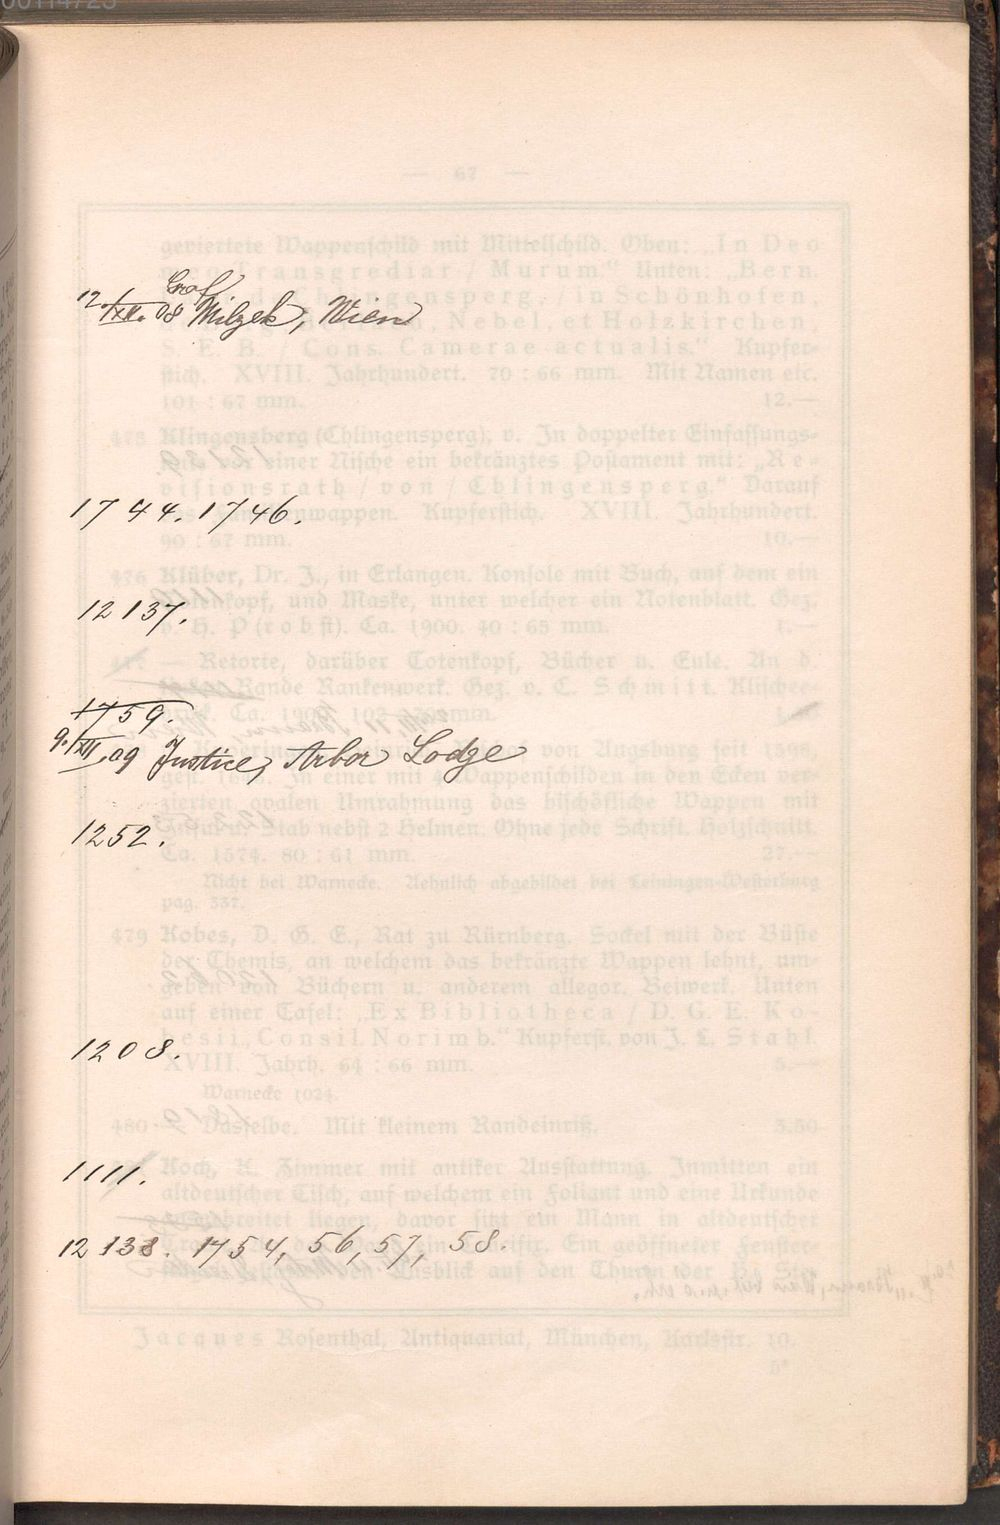 00114725
Graf
12./XII. 08 Wilzek, Wien
1744. 1746.
12137.
1759.
9./XII. 09 Justice, Arbor Lodge
1252.
1208.
1111.
12138. 1754, 56, 57, 58.
— 67 —
geviertete Wappenschild mit Mittelschild. Oben: „In Deo
meo Transgrediar / Murum.“ Unten: „Bern.
Chlingensperg, / in Schönhofen,
Nebel, et Holzkirchen,
S. E. B. / Cons. Camerae actualis.“ Kupfer-
stich. XVIII. Jahrhundert. 70 : 66 mm. Mit Namen etc.
101 : 67 mm. 12.—
475 Klingensberg (Chlingensperg), v. In doppelter Einfassungs-
einer Nische ein bekränztes Postament mit: „Re-
visionsrath / von / Chlingensperg.“ Darauf
Kupferstich. XVIII. Jahrhundert.
90 : 67 mm. 10.—
476 Klüber, Dr. J., in Erlangen. Konsole mit Buch, auf dem ein
Totenkopf, und Maske, unter welcher ein Notenblatt. Gez.
v. H. P(robst). Ca. 1900. 40 : 65 mm. 1.—
477 — Retorte, darüber Totenkopf, Bücher u. Eule. An d.
Rande Rankenwerk. Gez. v. C. Schmitt. Klischee-
von Augsburg seit 1598,
In einer mit 4 Wappenschilden in den Ecken ver-
zierten ovalen Umrahmung das bischöfliche Wappen mit
Stab nebst 2 Helmen. Ohne jede Schrift. Holzschnitt.
Ca. 1574. 80 : 61 mm. 27.—
Nicht bei Warnecke. Aehnlich abgebildet bei Leiningen-Westerburg
pag. 337.
479 Kobes, D. G. E., Rat zu Nürnberg. Sockel mit der Büste
der Themis, an welchem das bekränzte Wappen lehnt, um-
geben von Büchern u. anderem allegor. Beiwerk. Unten
auf einer Tafel: „Ex Bibliotheca / D. G. E. Ko-
besii, Consil. Norimb.“ Kupferst. von J. L. Stahl.
XVIII. Jahrh. 64 : 66 mm. 5.—
Warnecke 1024.
480 — Dasselbe. Mit kleinem Randeinriß. 3.50
Koch, K. Zimmer mit antiker Ausstattung. Inmitten ein
altdeutscher Tisch, auf welchem ein Foliant und eine Urkunde
ausgebreitet liegen, davor sitzt ein Mann in altdeutscher
Ein geöffneter Fenster-
Ausblick auf den
Jacques Rosenthal, Antiquariat, München, Karlstr. 10.
5*